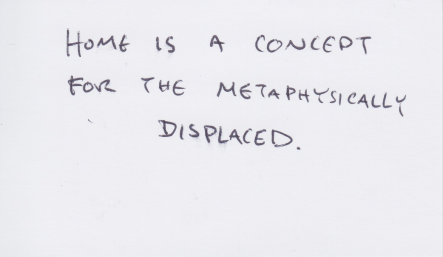 HOME IS A CONCEPT
FOR THE METAPHYSICALLY
DISPLACED.